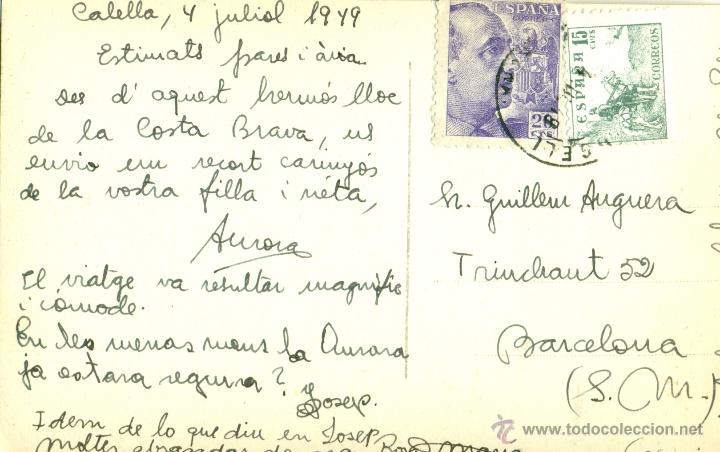 Calella, 4 juliol 1949
Estimats pares i àvia
Des d'aquest hermós lloc
de la Costa Brava, us
envio em recort carinyós
de la vostra filla i néta,
Aurora
El viatge va resultar magnífic
i còmode.
En les menas mans la Aurora
ja estara segura?
Josep.
Idem de lo que diu en Josep,
Moltes abrazadas de
ESPAÑA
CORREOS
20
ESPAÑA 15
CTS
CORREOS
Sr. Guillem Anguera
Trinchant 52
Barcelona
(S. M.)
todocoleccion
www.todocoleccion.net